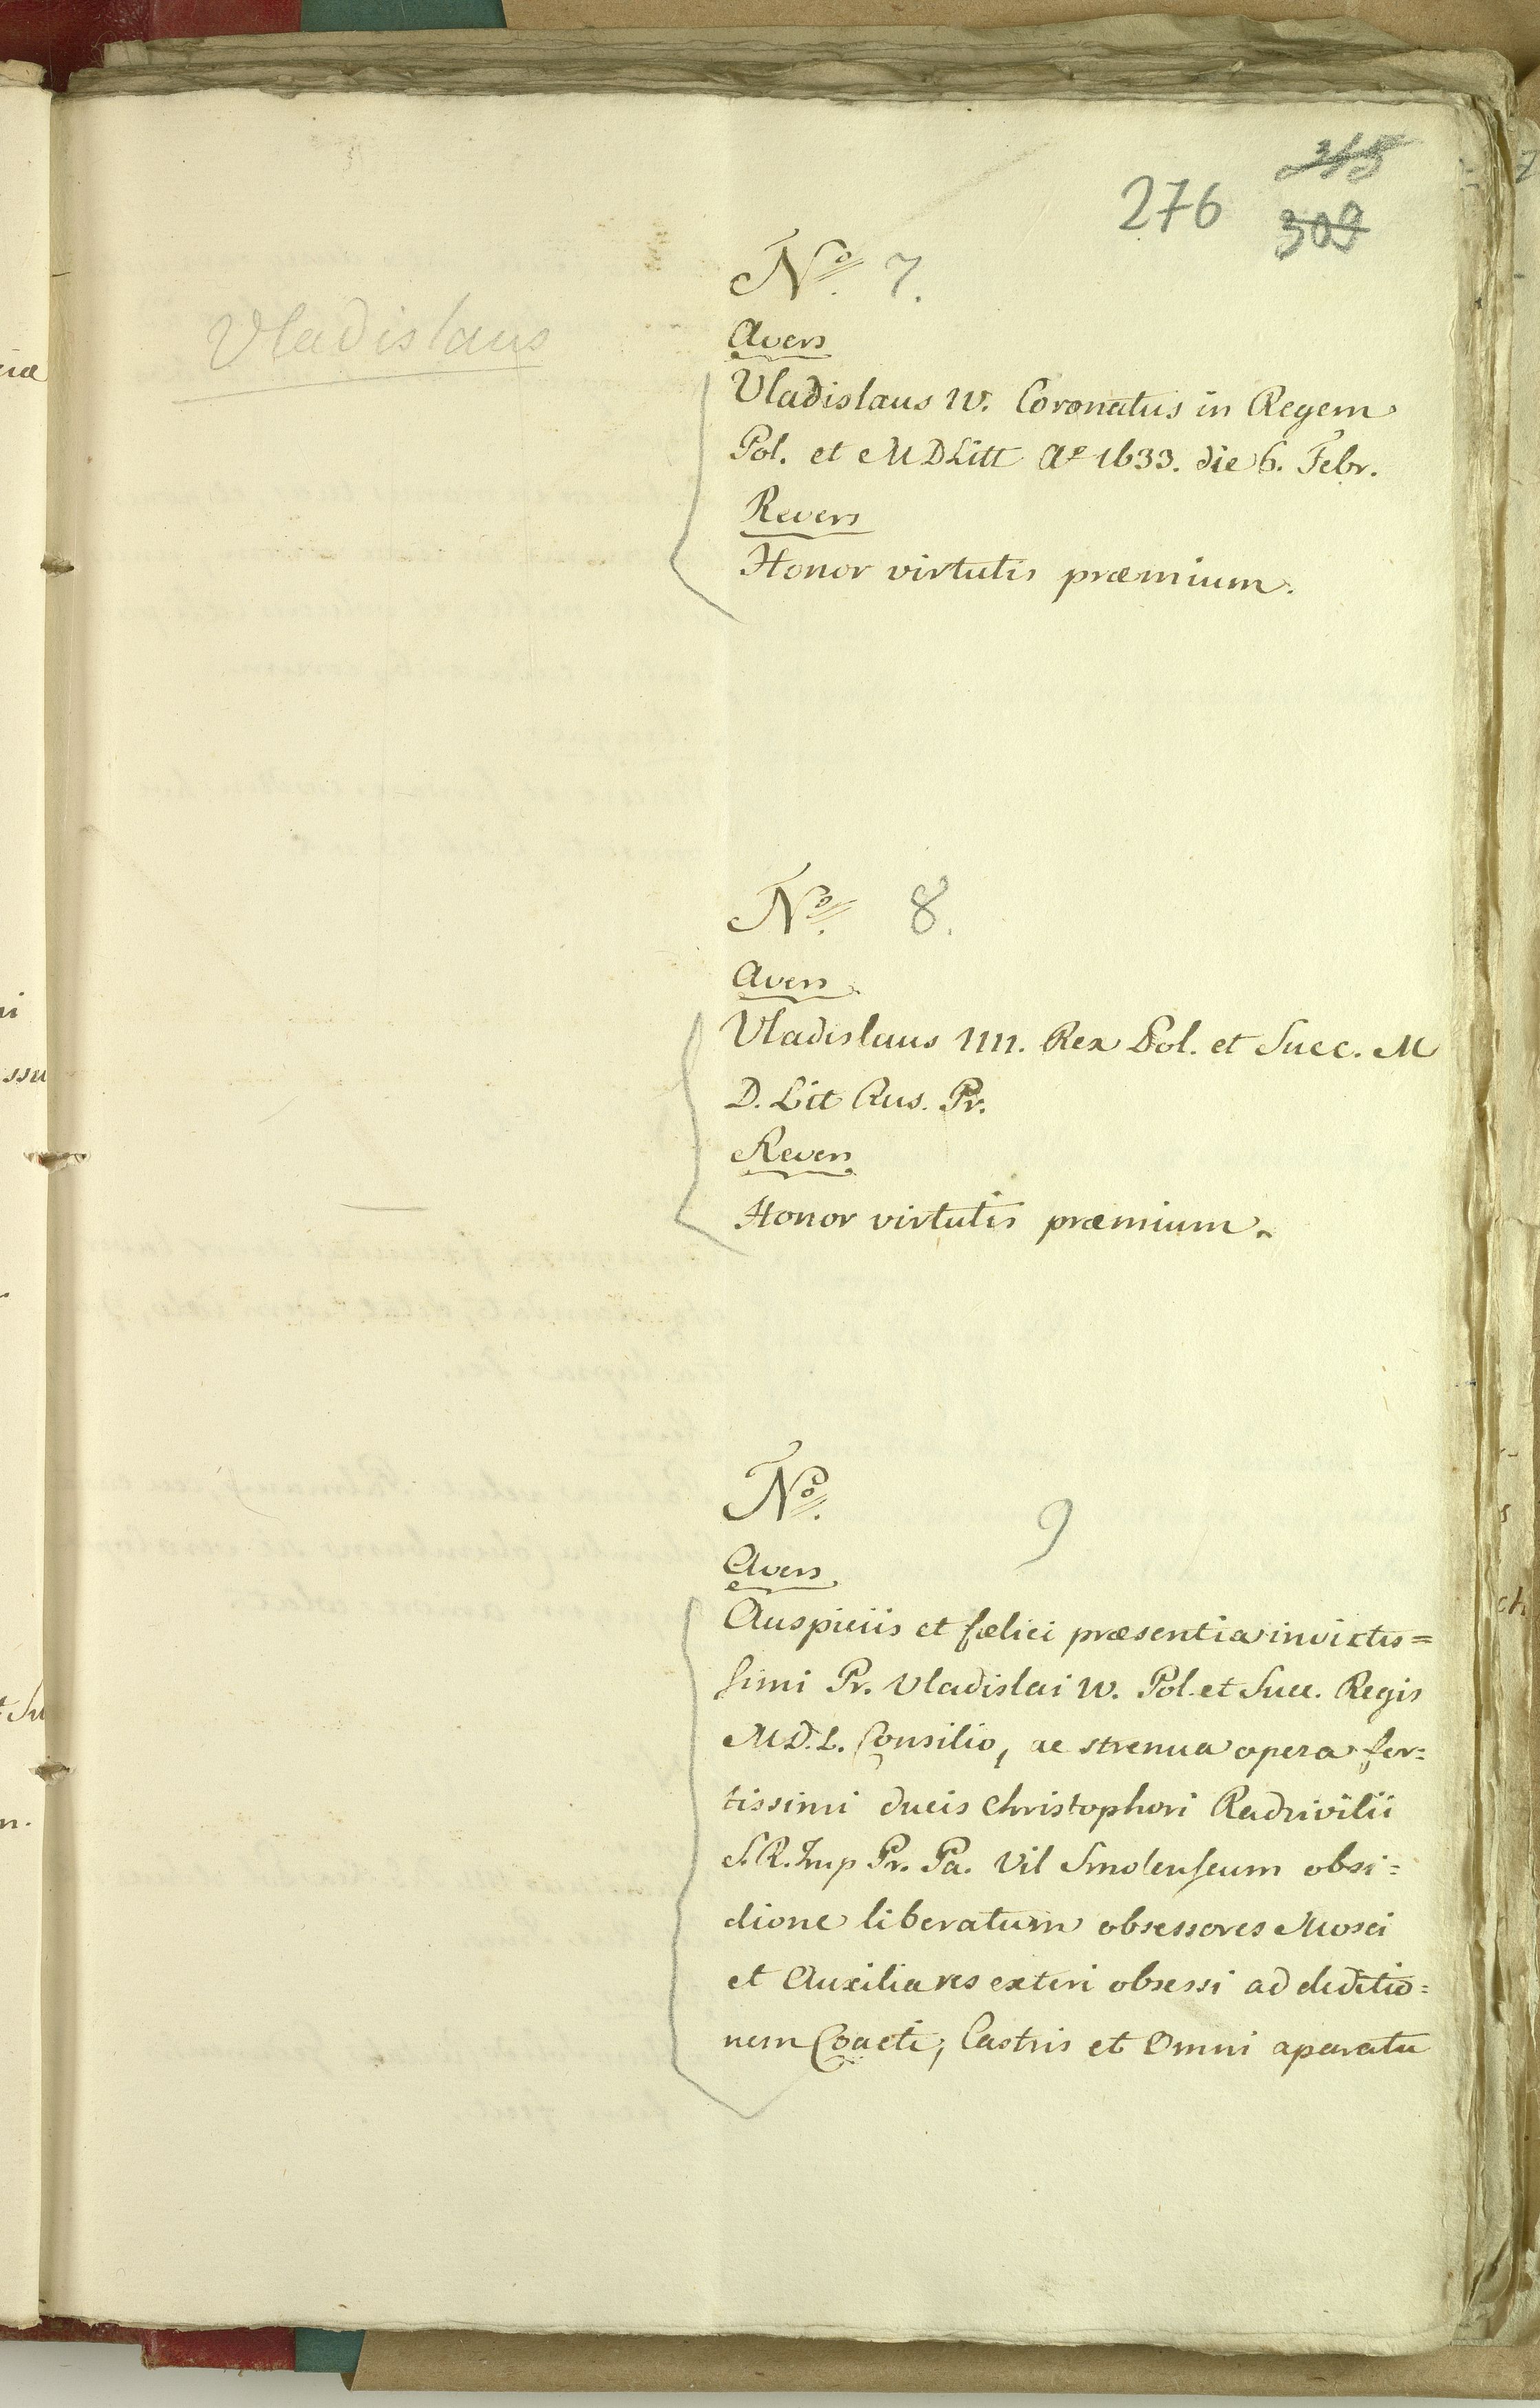 315
276 309
Vladislaus
No. 7.
Avers
Vladislaus IV. Coronatus in Regem
Pol. et M D Litt Ao 1633. die 6. Febr.
Revers
Honor virtutis præmium.
No. 8.
Avers
Vladislaus IIII. Rex Pol. et Suec. M
D. Lit Rus. Pr.
Revers
Honor virtutis præmium.
No. 9
Avers
Auspiciis et fœlici præsentia invictis=
simi Pr. Vladislai IV. Pol. et Suec. Regis
M D. L. Consilio, ac strenua opera for=
tissimi ducis Christophori Radzivilii
S. R. Imp Pr. Pa. Vil Smolenscum obsi=
dione liberatum obsessores Mosci
et Auxiliares exteri obsessi ad deditio=
nem Coacti, Castris et Omni aparatu